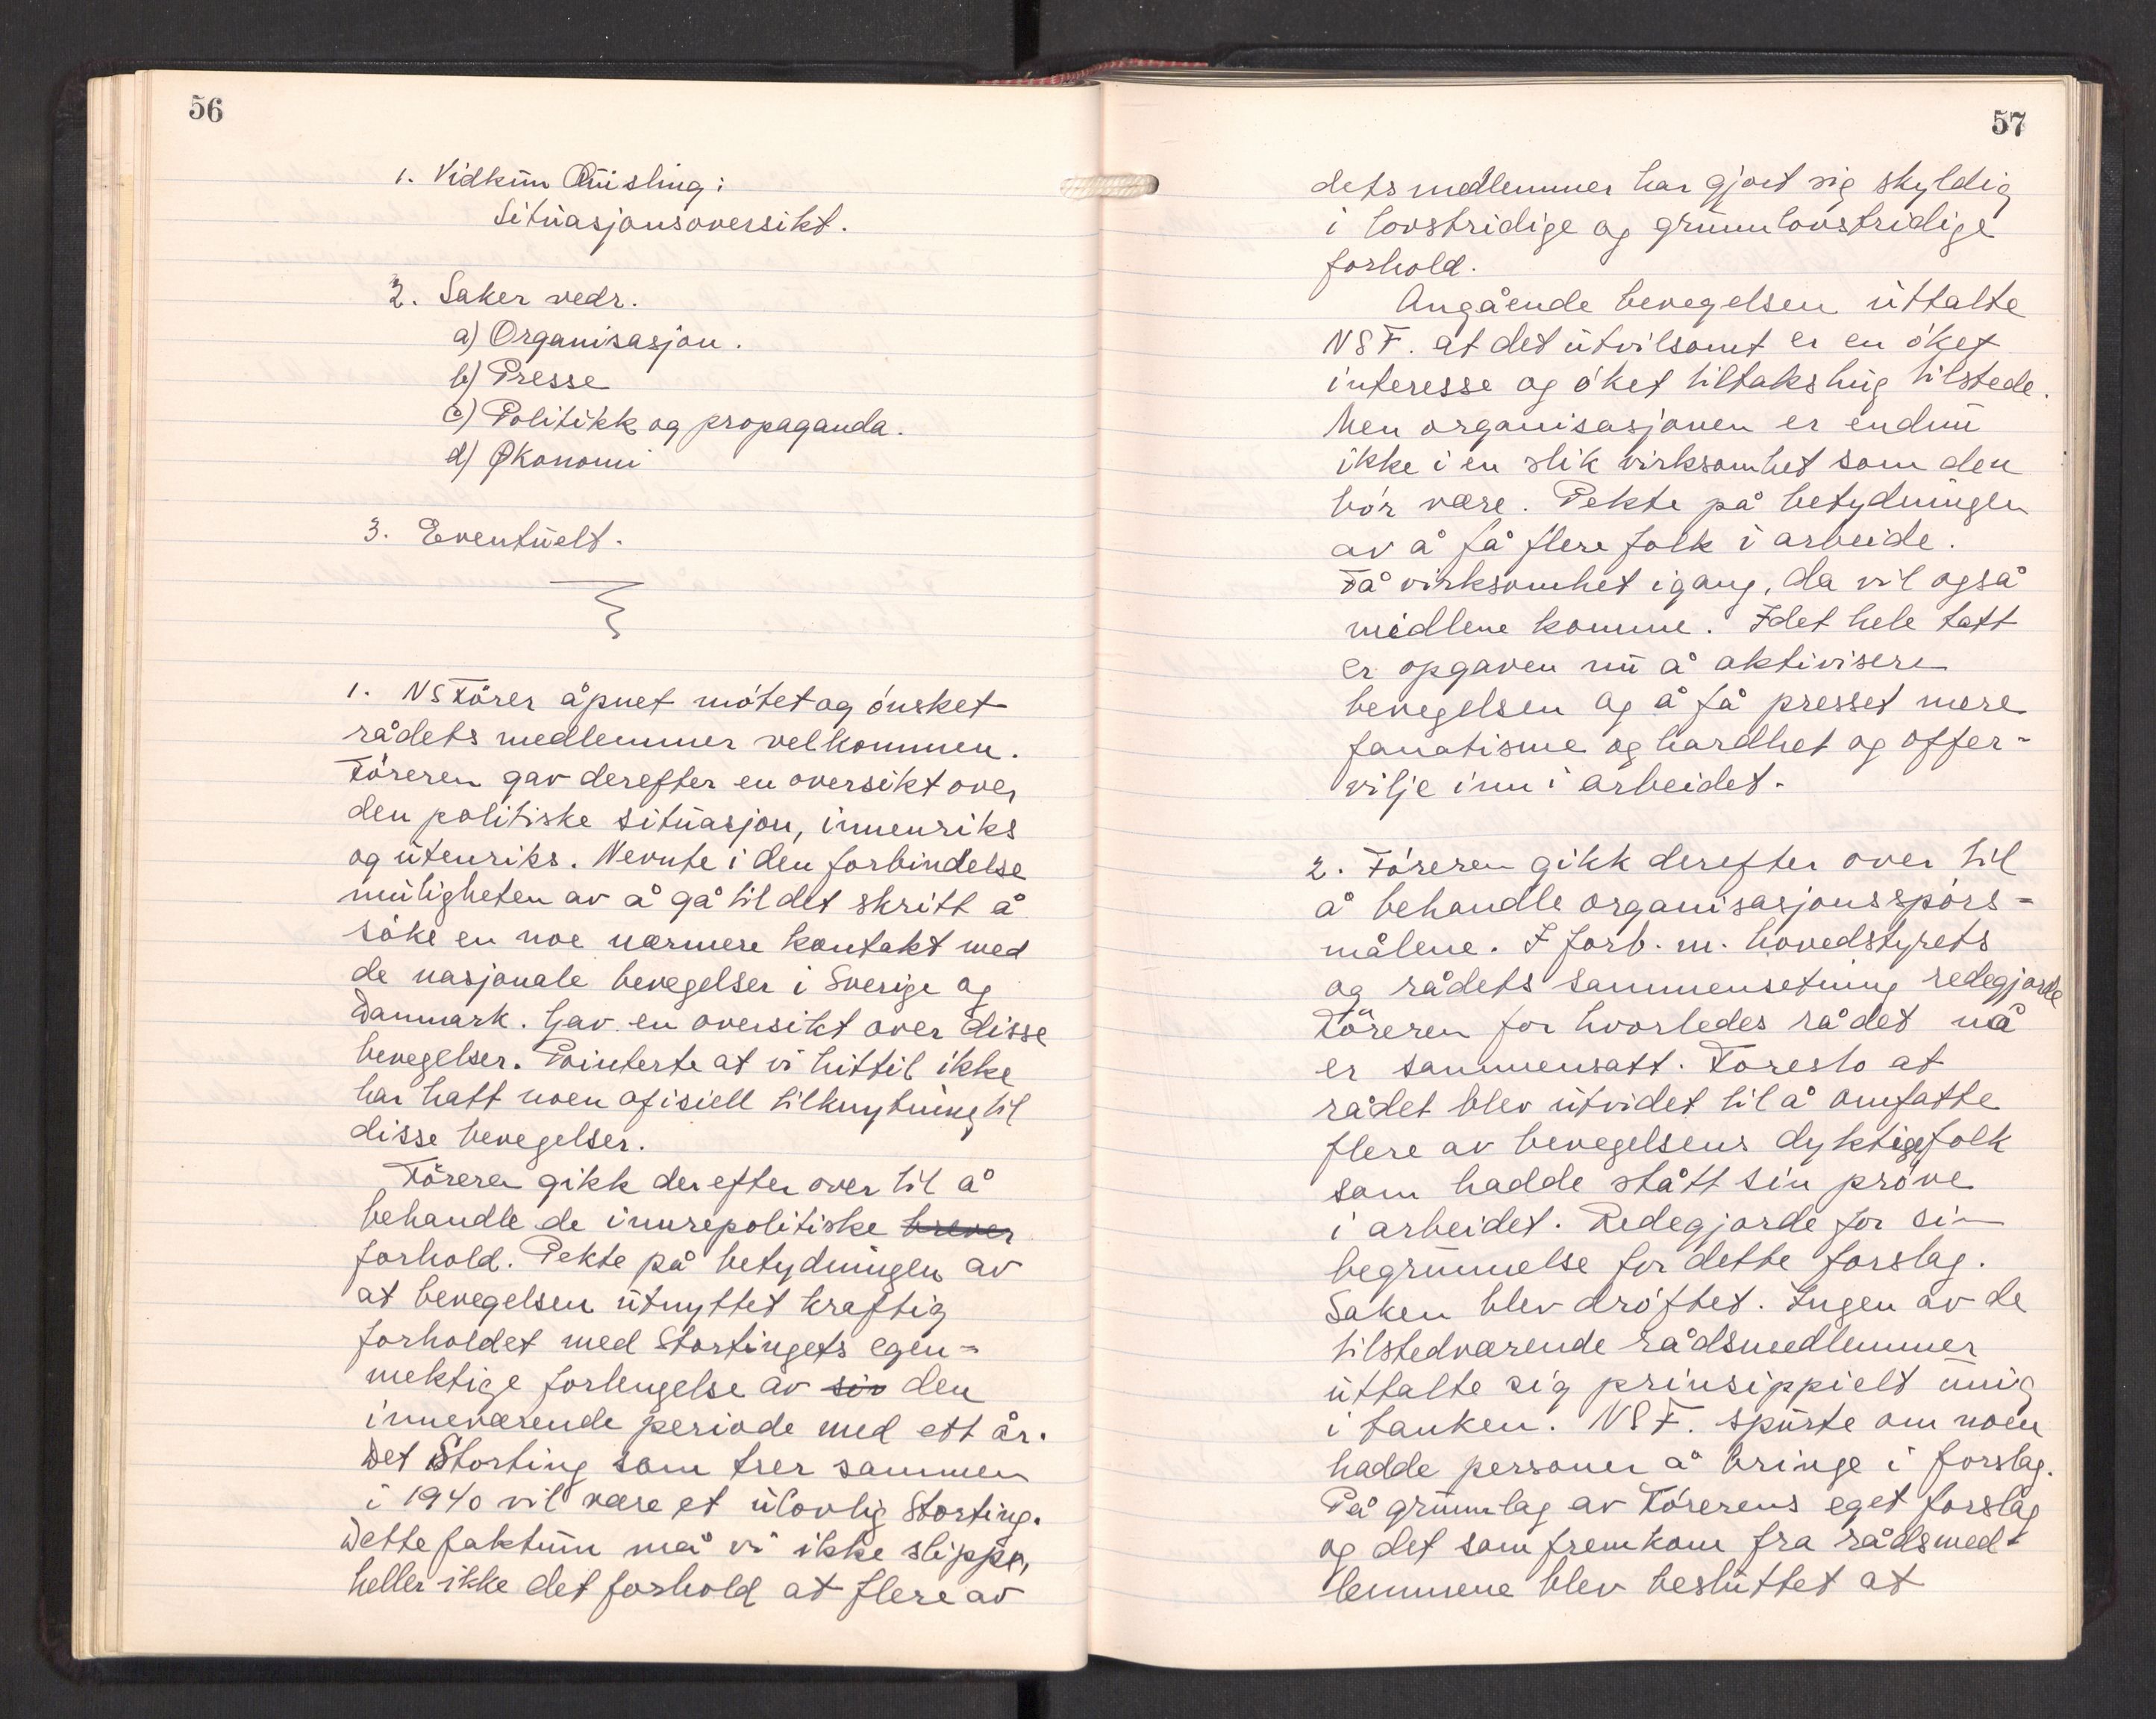 56
1. Vidkun Quisling:
Situasjonsoversikt.
2. Saker vedr.
a) Organisasjon.
b) Presse
c) Politikk og propaganda.
d) Økonomi
3. Eventuelt.
1. NSFörer åpnet mötet og önsket
rådets medlemmer velkommen.
Föreren gav derefter en oversikt over
den politiske situasjon, innenriks
og utenriks. Nevnte i den forbindelse
muligheten av å gå til det skritt å
söke en noe nærmere kontakt med
de nasjonale bevegelser i Sverige og
Danmark. Gav en oversikt over disse
bevegelser. Pointerte at vi hittil ikke
har hatt noen ofisiell tilknytning til
disse bevegelser.
Föreren gikk derefter over til å
behandle de innrepolitiske brever
forhold. Pekte på betydningen av
at bevegelsen utnyttet kraftig
forholdet med Stortingets egen-
mektige forlengelse av sin den
inneværende periode med ett år.
Det Storting som trer sammen
i 1940 vil være et ulovlig Storting.
Dette faktum må vi ikke slippe,
heller ikke det forhold at flere av
57
dets medlemmer har gjort sig skyldig
i lovstridige og grunnlovstridige
forhold.
Angående bevegelsen uttalte
NSF. at det utvilsomt er en öket
interesse og öket tiltakshug tilstede.
Men organisasjonen er endnu
ikke i en slik virksomhet som den
bör være. Pekte på betydningen
av å få flere folk i arbeide.
Få virksomhet igang, da vil også
midlene komme. I det hele tatt
er opgaven nu å aktivisere
bevegelsen og å få presset mere
fanatisme og hardhet og offer-
vilje inn i arbeidet.
2. Föreren gikk derefter over til
å behandle organisasjonsspörs-
målene. I forb. m. hovedstyrets
og rådets sammensetning redegjorde
Föreren for hvorledes rådet nå
er sammensatt. Foreslo at
rådet blev utvidet til å omfatte
flere av bevegelsens dyktige folk
som hadde stått sin pröve
i arbeidet. Redegjorde for sin
begrunnelse for dette forslag.
Saken blev dröftet. Ingen av de
tilstedværende rådsmedlemmer
uttalte sig prinsippielt uenig
i tanken. NSF. spurte om noen
hadde personer å bringe i forslag.
På grunnlag av Förerens eget forslag
og det som fremkom fra rådsmed-
lemmene blev besluttet at